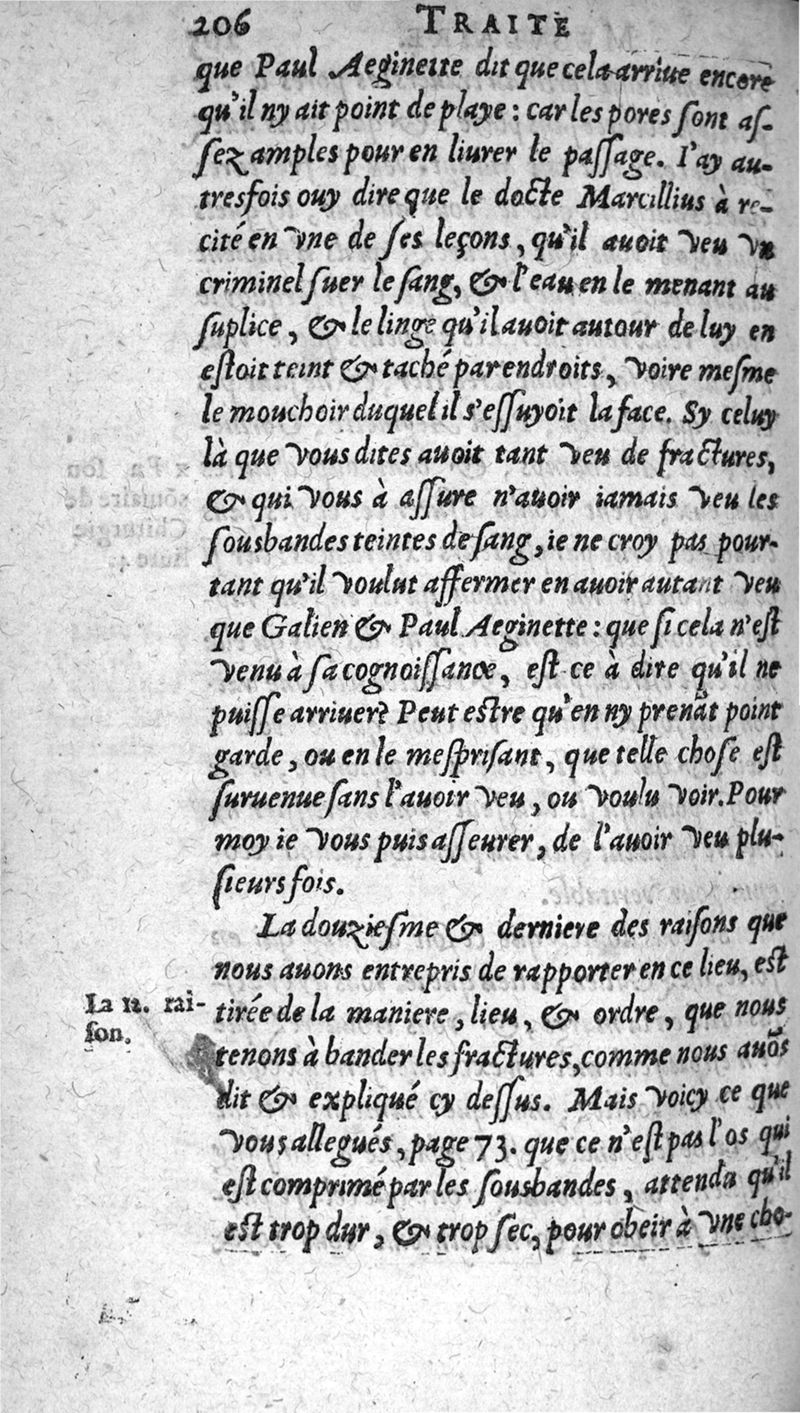 206 TRAITE
que Paul Aeginette dit que cela arriue encore
qu'il ny ait point de playe : car les pores sont as-
sez amples pour en liurer le passage. I'ay au-
tresfois ouy dire que le docte Marcillius à re-
cité en vne de ses leçons, qu'il auoit veu vn
criminel suer le sang, & l'eau en le menant au
suplice, & le linge qu'il auoit autour de luy en
estoit teint & taché par endroits, voire mesme
le mouchoir duquel il s'essuyoit la face. Sy celuy
là que vous dites auoit tant veu de fractures,
& qui vous à assure n'auoir iamais veu les
sousbandes teintes de sang, ie ne croy pas pour-
tant qu'il voulut affermer en auoir autant veu
que Galien & Paul Aeginette : que si cela n'est
venu à sa cognoissance, est ce à dire qu'il ne
puisse arriuer? Peut estre qu'en ny prenāt point
garde, ou en le mesprisant, que telle chose est
suruenue sans l'auoir veu, ou voulu voir. Pour
moy ie vous puis asseurer, de l'auoir veu plu-
sieurs fois.
La douziesme & derniere des raisons que
nous auons entrepris de rapporter en ce lieu, est
La 12. rai-
son.
tirée de la maniere, lieu, & ordre, que nous
tenons à bander les fractures, comme nous auōs
dit & expliqué cy dessus. Mais voicy ce que
vous allegués, page 73. que ce n'est pas l'os qui
est comprimé par les sousbandes, attendu qu'il
est trop dur, & trop sec, pour obeir à vne cho-